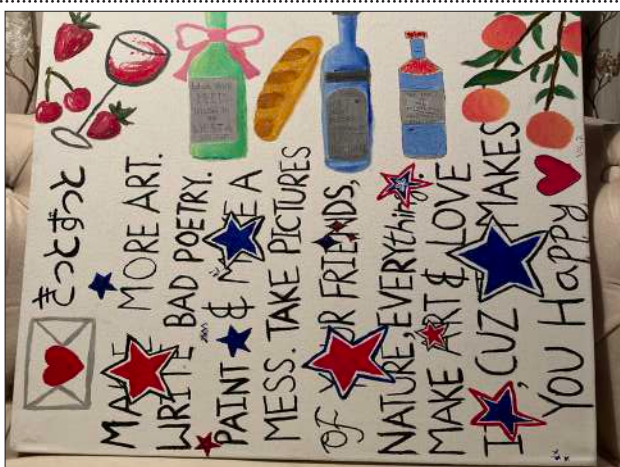 きっとずっと
MAKE MORE ART.
WRITE BAD POETRY.
PAINT & MAKE A
MESS. TAKE PICTURES
OF YOUR FRIENDS,
NATURE, EVERYthing.
MAKE ART & LOVE
IT, CUZ MAKES
YOU Happy